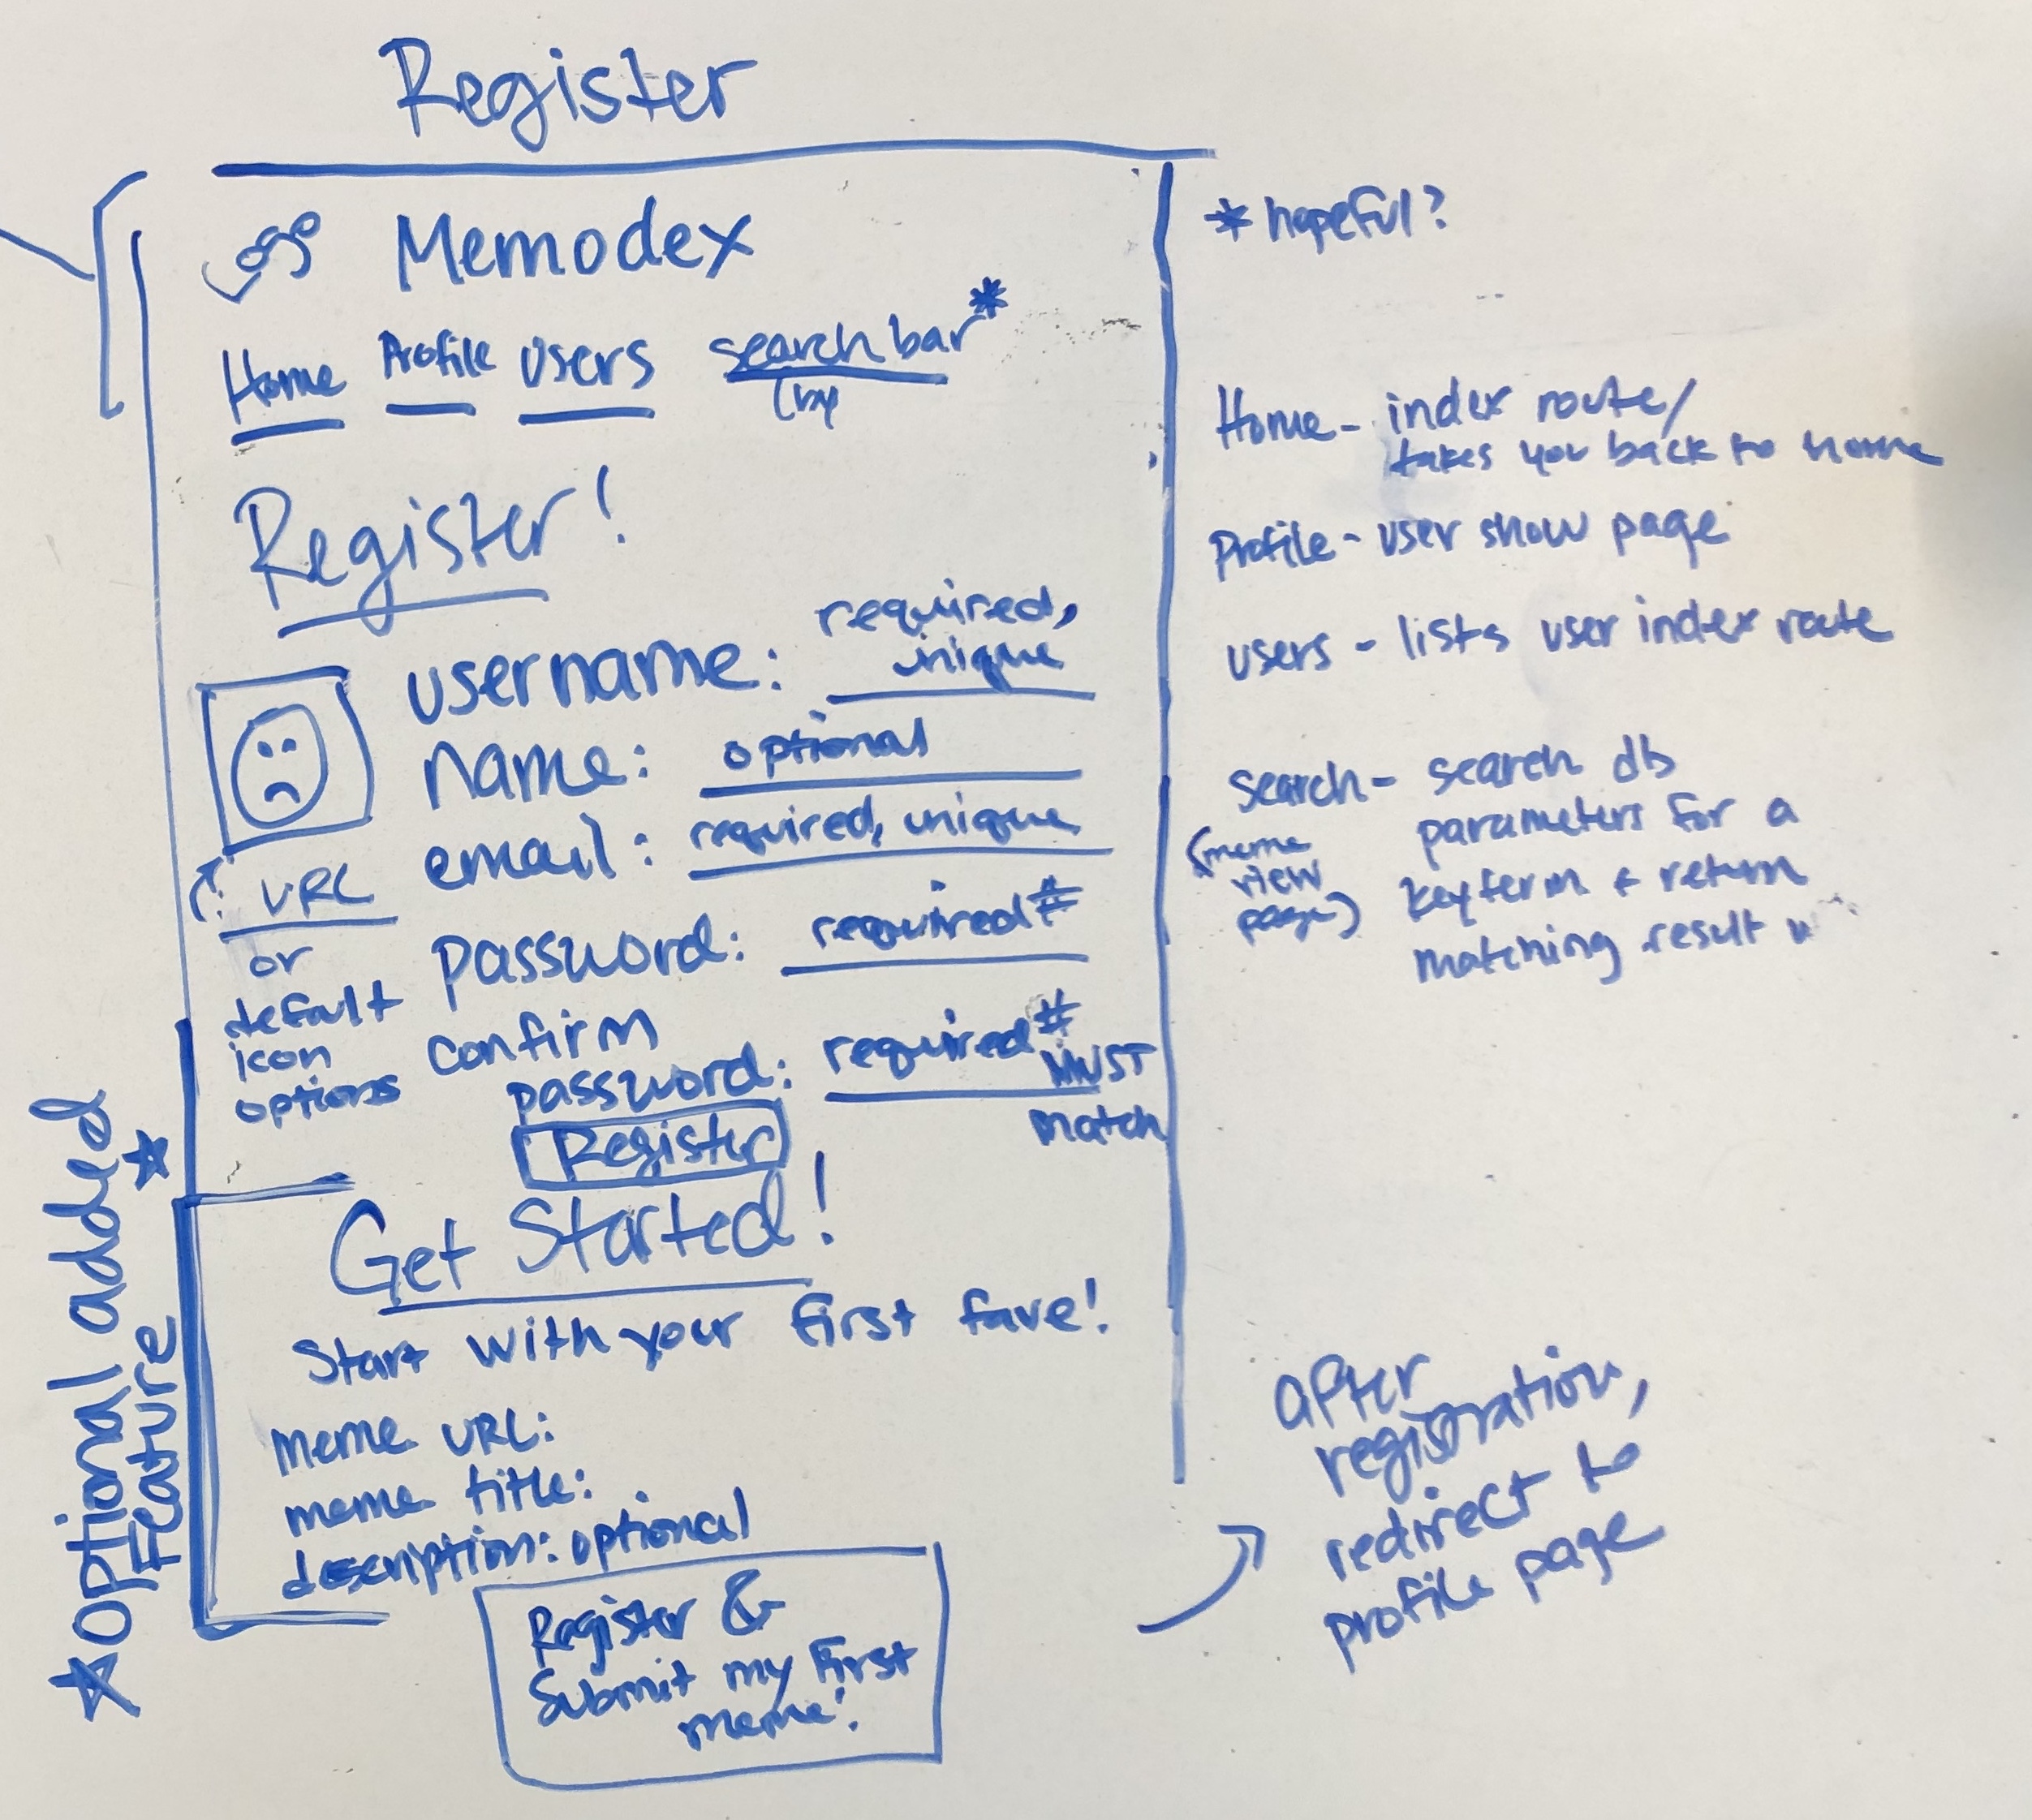 Register
Memodex
Home Profile users search bar*
(by
Register!
username: required,
unique
name: optional
email: required, unique
password: required#
confirm
password: required#
MUST
match
Register
URL
or
default
icon
options
Get Started!
Start with your first fave!
meme URL:
meme title:
description: optional
Register &
Submit my first
meme!
*optional added*
Feature
*hopeful?
Home- index route/
takes you back to home
Profile- user show page
users - lists user index route
search- search db
parameters for a
key term + return
matching result
(meme
view
page)
after
registration,
redirect to
profile page